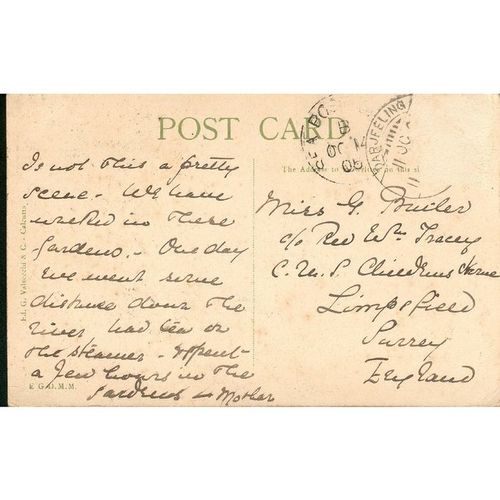 POST CARD
The Address to be Written on this si
SEA BO
B
OC 14
06
DARJEELING
11 OC
11
Is not this a pretty
scene - We have
walked in these
Gardens - One day
we went some
distance down the
river had tea on
the steamer - & spent
a few hours in the
Gardens - Mother
Miss G. Butler
c/o Rev Wm Tracey
C. M. S Childrens Home
Limpsfield
Surrey
England
Ed. G. Valsecchi & C. - Calcutta.
E G D. M. M.